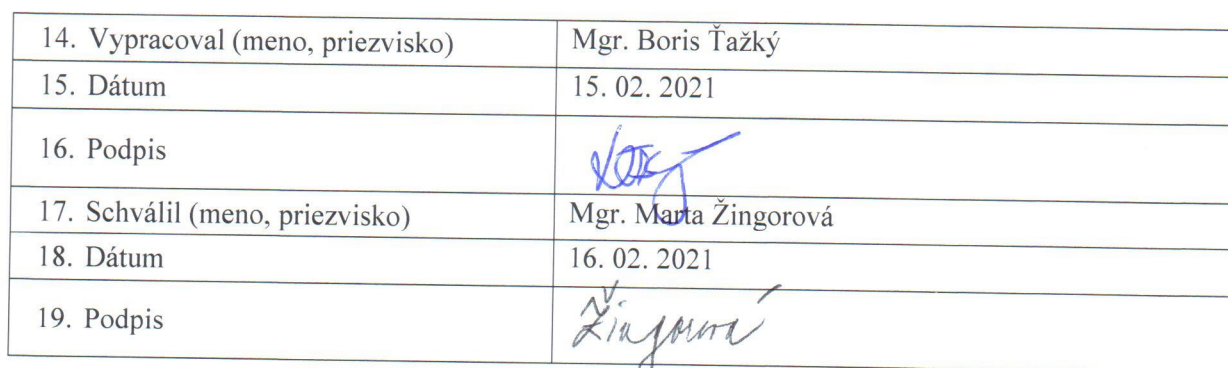 14. Vypracoval (meno, priezvisko) Mgr. Boris Ťažký
15. Dátum 15. 02. 2021
16. Podpis
17. Schválil (meno, priezvisko) Mgr. Marta Žingorová
18. Dátum 16. 02. 2021
19. Podpis Žingorová